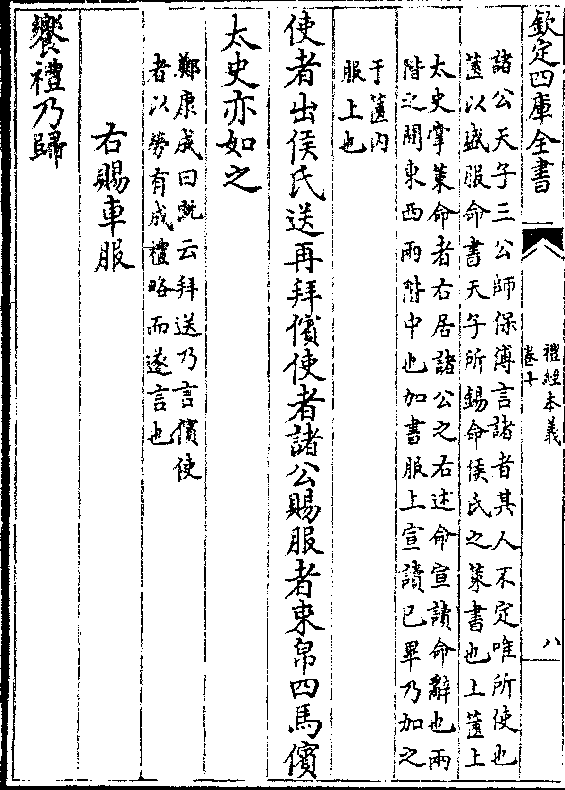 欽定四庫全書
禮經本義
卷十
八
諸公天子三公師保傅言諸者其人不定唯所使也
篋以盛服命書天子所錫命侯氏之策書也上篋上
太史掌策命者右居諸公之右述命宣讀命辭也兩
階之間東西兩階中也加書服上宣讀已畢乃加之
于篋内
服上也
使者出侯氏送再拜儐使者諸公賜服者束帛四馬儐
太史亦如之
鄭康成曰既云拜送乃言儐使
者以勞有成禮略而遂言也
右賜車服
饗禮乃歸